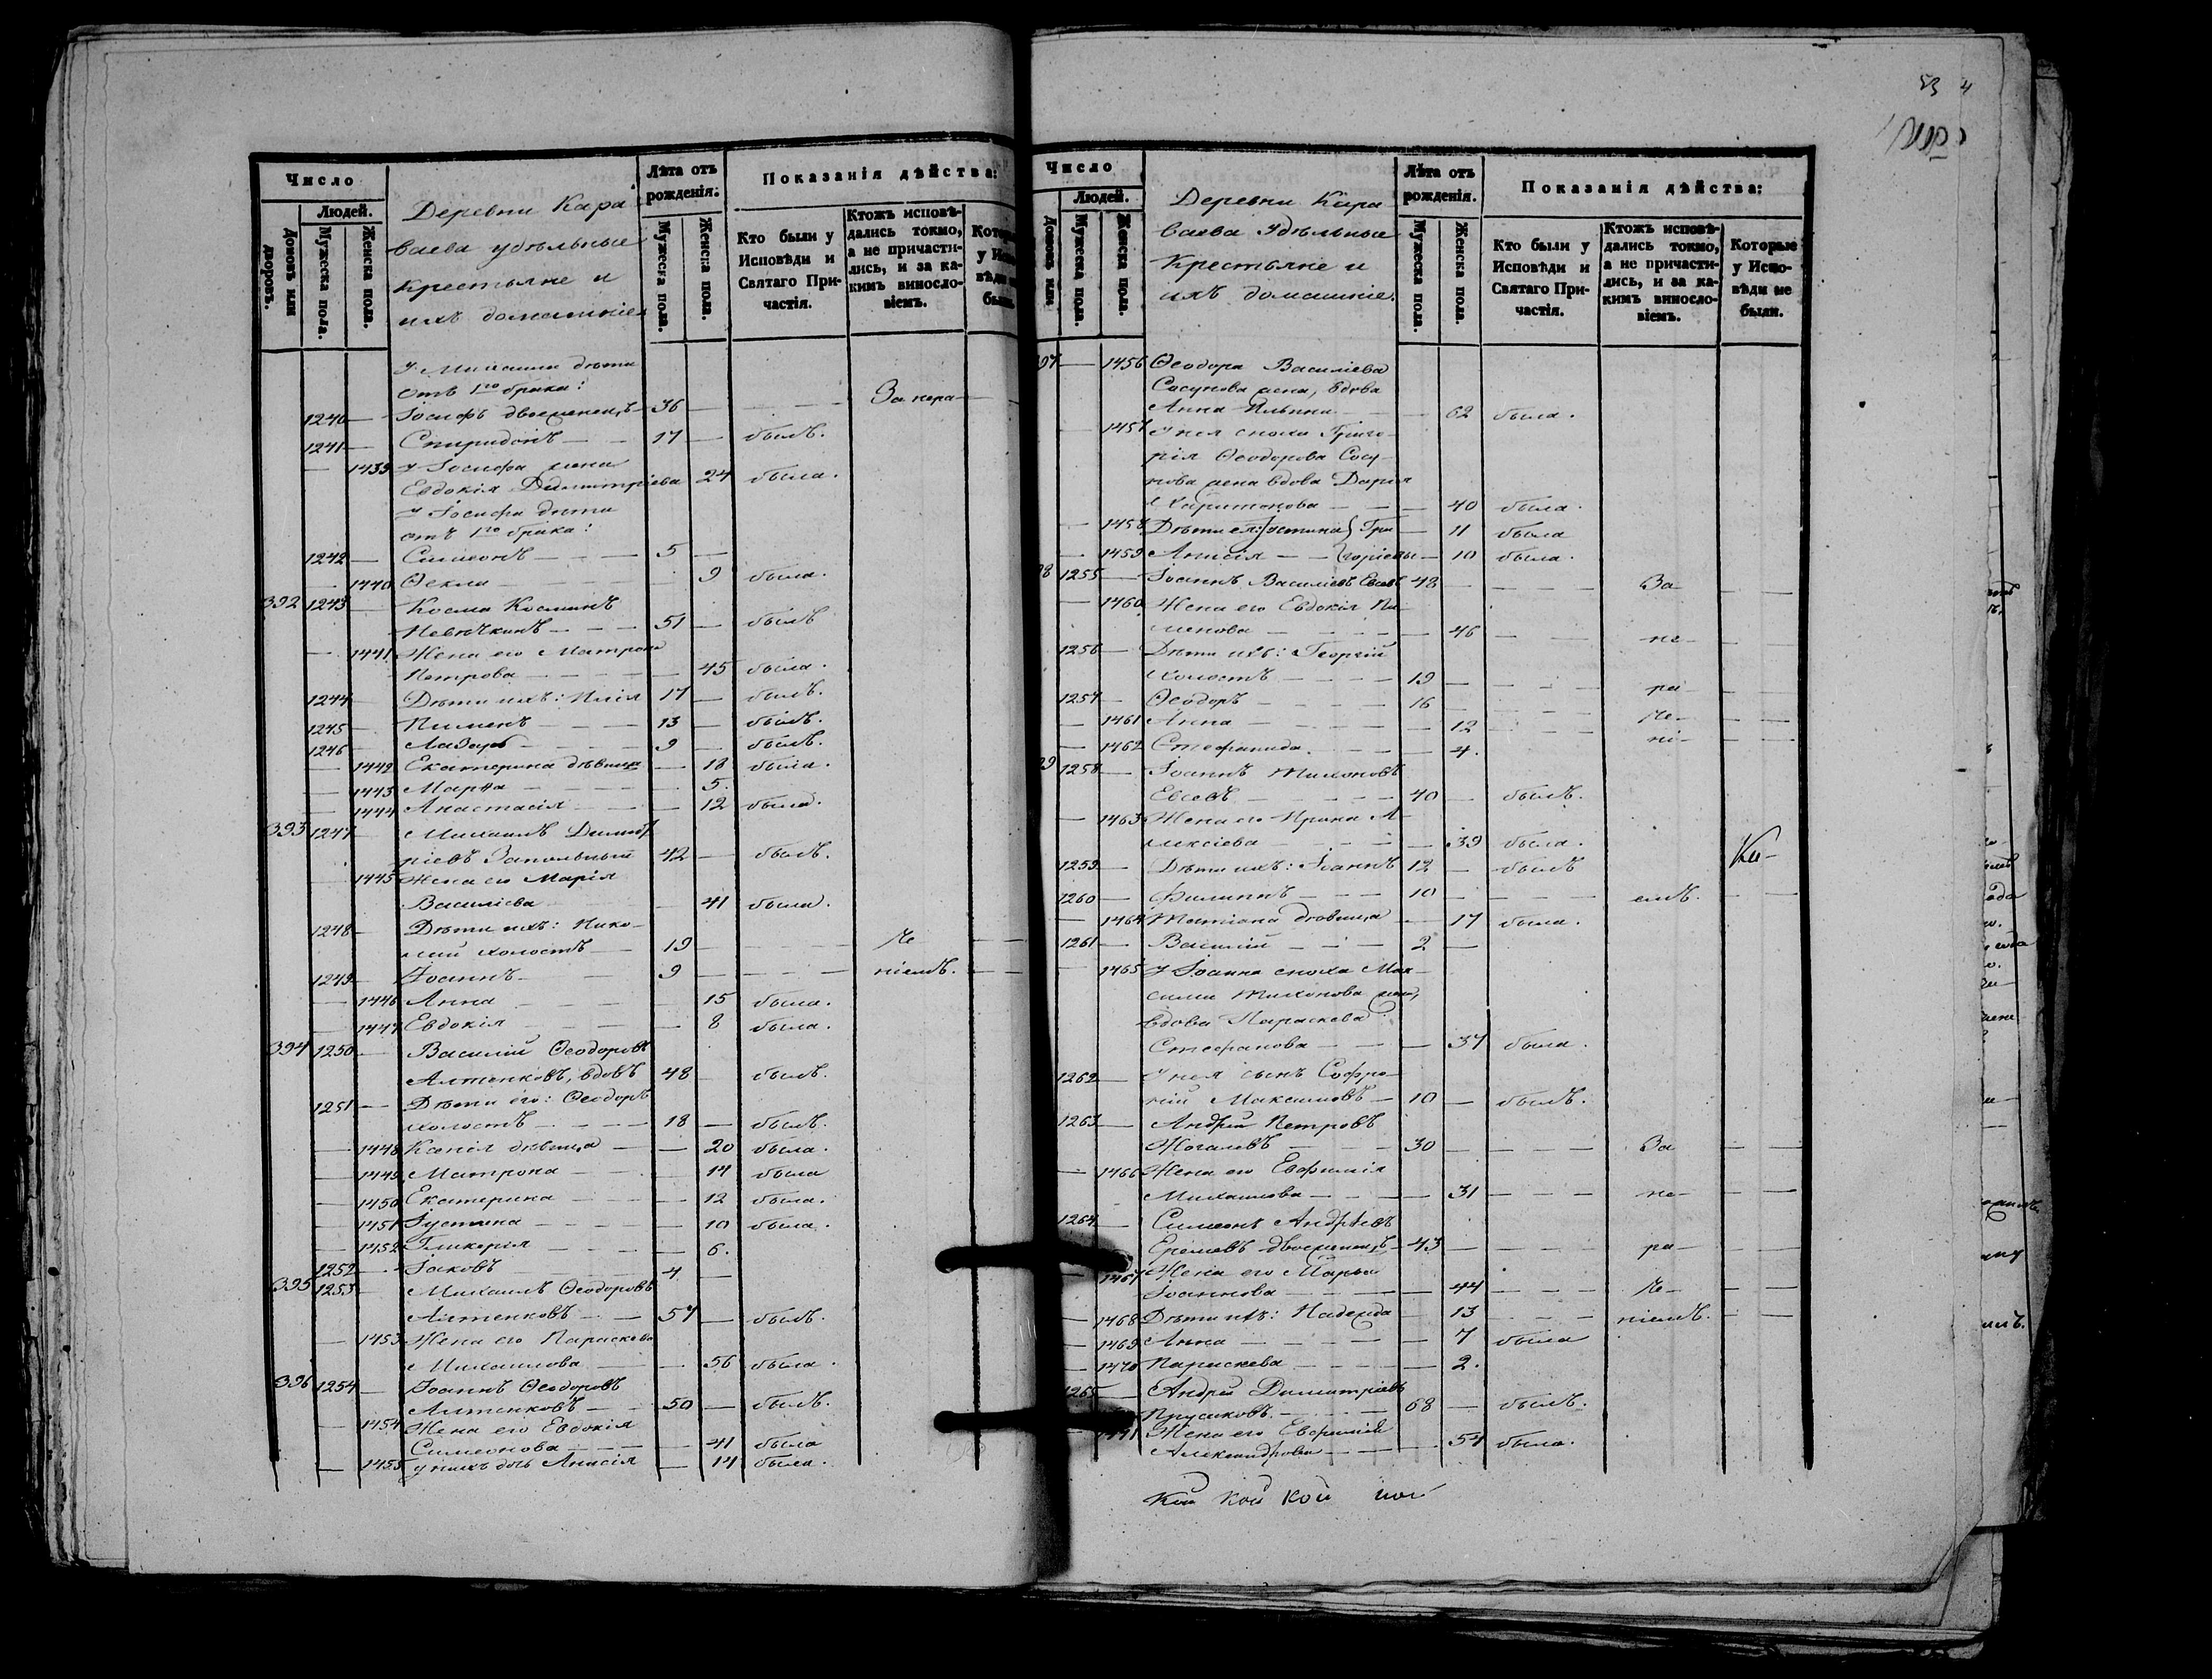 Число
Людей.
Домовъ или дворовъ.
Мужеска пола.
Женска пола.
Деревни Кара
ваева удѣльные
крестьяне и
ихъ домашніе
Лѣта отъ рожденія:
Мужеска пола.
Женска пола.
Показанія дѣйства:
Кто были у Исповѣди и Святаго Причастія.
Ктожъ исповѣдались токмо, а не причастились, и за какимъ винословіемъ.
У Михаила дѣти
отъ 1го брака:
1240 — Іосифъ двоеженецъ — 36 — — — За нера —
1241 — Спиридонъ — — 17 — былъ.
— 1439 У Іосифа жена
Евдокія Димитріева 24 была.
У Іосифа дѣти
отъ 1го брака:
1242 — Симеонъ — — 5 —
— 1440 Ѳекла — — 9 была.
392 1243 — Косма Косминъ
— — — 51 — былъ
— 1441 Жена его Матрона
Петрова — — — 45 была.
1244 — Дѣти ихъ: Илія 17 — былъ.
1245 — Пименъ — — 13 — былъ.
1246 — Лазарь — — 9 — былъ.
— 1442 Екатерина дѣвица — 18 была.
— 1443 Марѳа — — 5.
— 1444 Анастасія — — 12 была.
393 1247 — Михаилъ Димит
ріевъ Запольный 42 — былъ.
1445 Жена его Марія
Василіева — — 41 была.
1248 — Дѣти ихъ: Нико-
лай холостъ — 19 — — — че — —
1249 — Іоаннъ — 9 — — — ніемъ. — —
— 1446 Анна — — 15 была.
— 1447 Евдокія — — 8 была.
394 1250 — Василій Ѳеодоровъ
Алтенковъ, вдовъ 48 былъ.
1251 — Дѣти его: Ѳеодоръ
холостъ — — 18 — былъ.
— 1448 Ксенія дѣвица — — 20 была.
— 1449 Матрона — — 14 была
— 1450 Екатерина — — 12 была.
— 1451 Іустина — — 10 была.
— 1452 Гликерія — — 6.
1252 — Іаковъ — 4 —
395 1253 — Михаилъ Ѳеодоровъ
Алтенковъ — — 57 — былъ.
— 1453 Жена его Параскева
Михаилова — — 56 была.
396 1254 — Іоаннъ Ѳеодоровъ
Алтенковъ — — 50 — былъ.
— 1454 Жена его Евдокія
Симеонова — — 41 была
— 1455 у нихъ дочь Анисія — 14 была.
53 4
Число
Людей.
Мужеска пола.
Женска пола.
Деревни Кара
ваева Удѣльные
Крестьяне и
ихъ домашніе.
Лѣта отъ рожденія.
Мужеска пола.
Женска пола.
Показанія дѣйства:
Кто были у Исповѣди и Святаго Причастія.
Ктожъ исповѣдались токмо, а не причастились, и за какимъ винословіемъ.
Которые у Исповѣди не были.
97 — 1456 Ѳеодора Василіева
Сосунова жена, вдова
Анна Ильина — — 62 была.
— 1457 У нея сноха Григо-
рія Ѳеодорова Сосу-
нова жена вдова Дарія
Харитонова — — 40 была.
— 1458 Дѣти ея: Іустина Гри — 11 была
— 1459 Анисія — — горіевы — 10 была.
98 1255 — Іоаннъ Василіевъ Евсевъ 48 — — — За — —
— 1460 Жена его Евдокія Пи
менова — — 46 — — не — —
1256 — Дѣти ихъ: Георгій
холостъ — — 19 — — — ра — —
1257 — Ѳеодоръ — — 16 — — — че — —
— 1461 Анна — — 12 — — ні — —
— 1462 Стефанида — — 4.
99 1258 — Іоаннъ Тихоновъ
Евсевъ — — 40 — былъ.
— 1463 Жена его Ирина А-
лексіева — — 39 была.
1259 — Дѣти ихъ: Іоаннъ 12 — былъ
1260 — Филиппъ — — 10 — — — емъ. — —
— 1464 Татіана дѣвица — 17 была.
1261 — Василій — — 2 —
— 1465 У Іоанна сноха Мак-
сима Тихонова жена,
вдова Параскева
Стефанова — — 37 была.
1262 — У нея сынъ Софро-
ній Максимовъ — 10 — былъ.
1263 — Андрей Петровъ
— — 30 — — — За — —
— 1466 Жена его Евфимія
Михаилова — — 31 — — не — —
1264 — Симеонъ Андреевъ
Еремевъ двоеженецъ 43 — — — ра — —
— 1467 Жена его Марья
Іоаннова — — 44 — — че — —
— 1468 Дѣти ихъ: Надежда — 13 — — ніемъ. — —
— 1469 Анна — — 7 была
— 1470 Параскева — — 2.
1265 — Андрей Димитріевъ
Прусаковъ — — 68 — былъ.
1471 Жена его Евфимія
Александрова — — 54 была.
кой кой кой